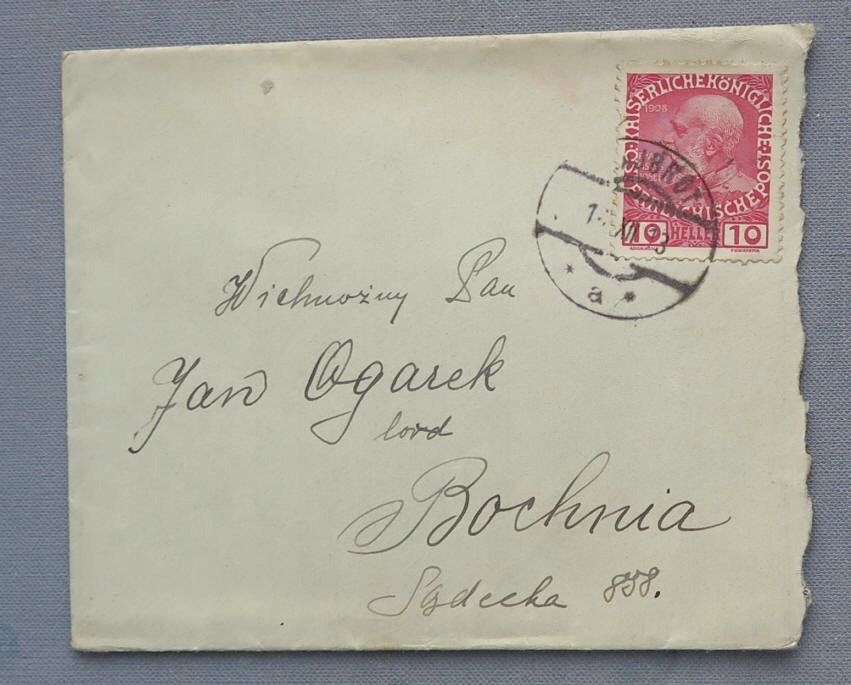 KAISERLICHE KÖNIGLICHE
1908
ÖSTERREICHISCHE POST
10 HELLER 10
XII 13
* a *
Wielmożny Pan
Jan Ogarek
lord
Bochnia
Sądecka 858.